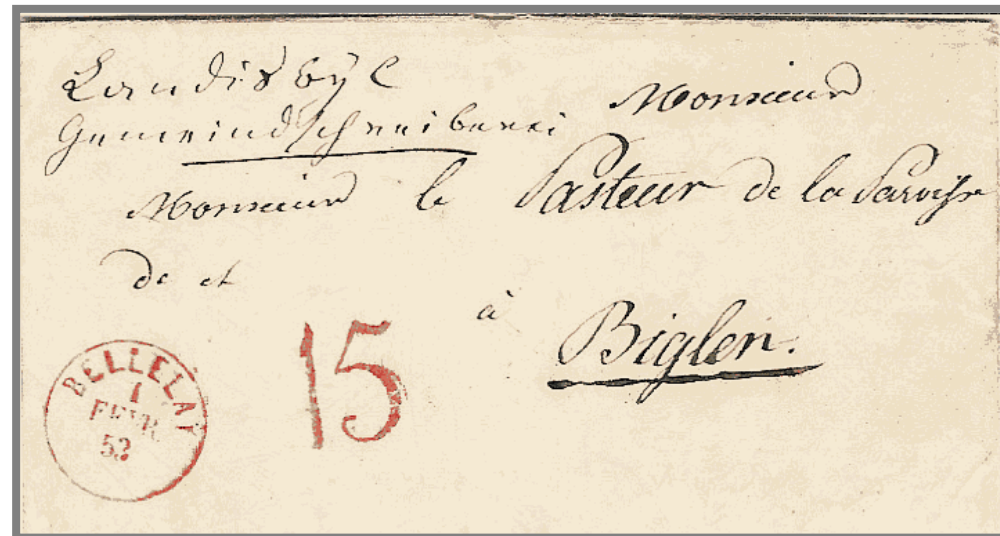 Landiswyl
Gemeindschreiberei
Monsieur
Monsieur le Pasteur de la Paroisse
de et
à
Biglen.
BELLELAY
1
FEVR.
52
15